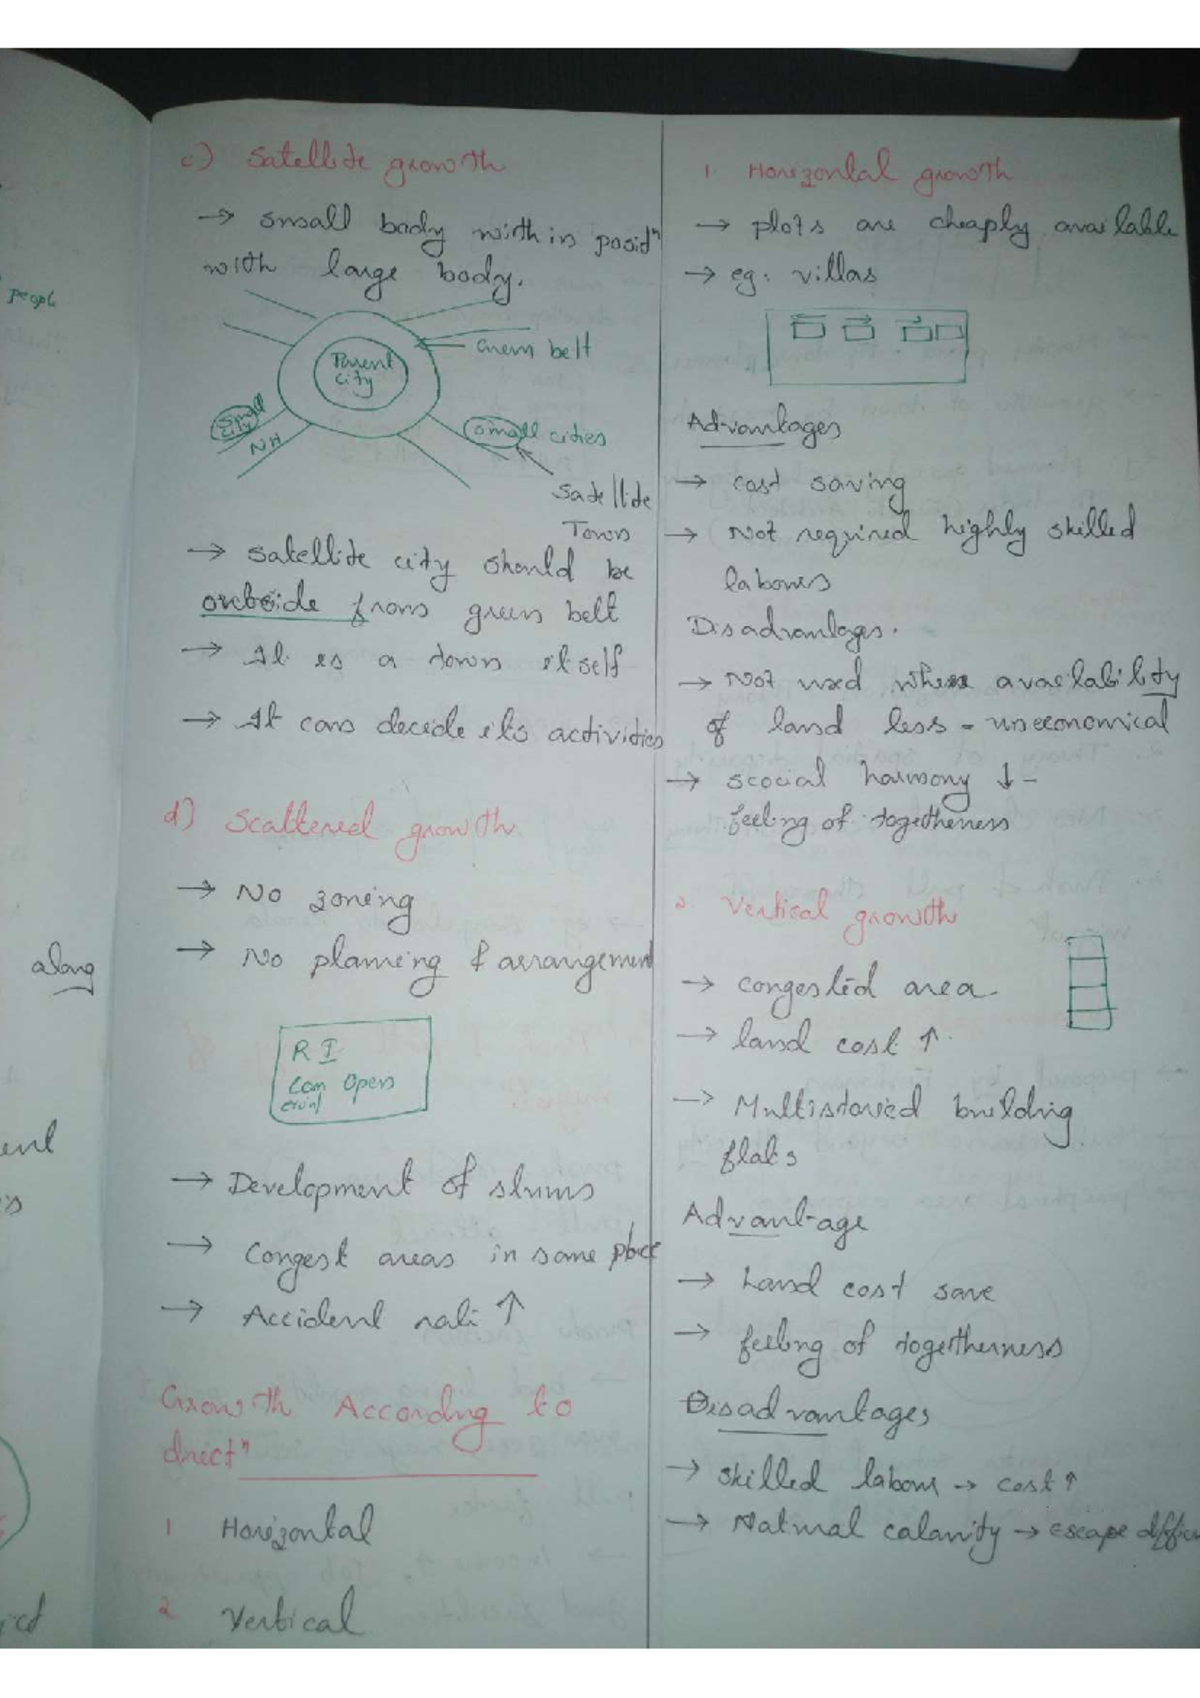 c) Satellite growth
→ small body within positn
with large body.
Parent
city
Green belt
small
city
NH
small cities
Satellite
Town
→ satellite city should be
outside from green belt
→ It is a town itself
→ It can decide its activities
d) Scattered growth
→ No zoning
→ No planning & arrangement
R I
Com Open
ercial
→ Development of slums
→ Congest areas in same place
→ Accident rate ↑
Growth According to
directn
1 Horizontal
2 Vertical
1. Horizontal growth
→ plots are cheaply available
→ eg: villas
Advantages
→ cost saving
→ Not required highly skilled
labours
Disadvantages.
→ Not used where availability
of land less - uneconomical
→ scocial harmony ↓ -
feeling of togetherness
2. Vertical growth
→ congested area
→ land cost ↑
→ Multistoried building
flats
Advantage
→ Land cost save
→ feeling of togetherness
Disadvantages
→ skilled labour → cost ↑
→ Natural calamity → escape difficu
people
along
ent